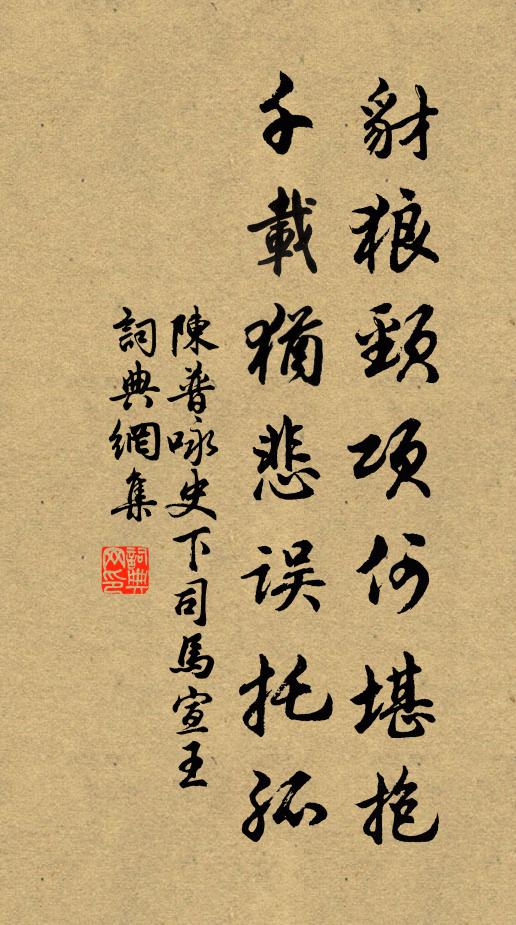 豺狼頸項何堪抱
千載猶悲误托孤
陳普咏史下司馬宣王
詞典網集
詞典网印